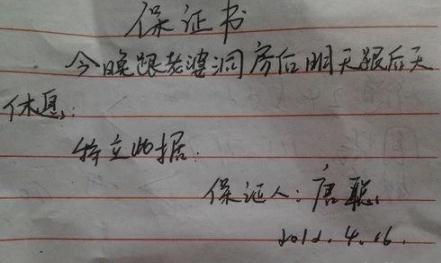 保证书
今晚跟老婆洞房后明天跟后天
休息：
特立此据.
保证人：唐聪
2012.4.16.